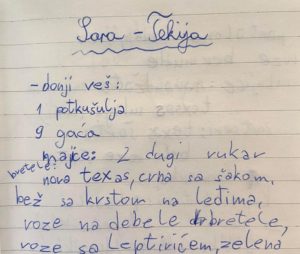 Sara - Tekija
-donji veš:
1 potkušulja
9 gaća
majce: 2 dugi rukav
bretele: nova texas, crna sa šakom,
bež sa krstom na leđima,
roze na debele bretele,
roze sa leptirićem, zelena